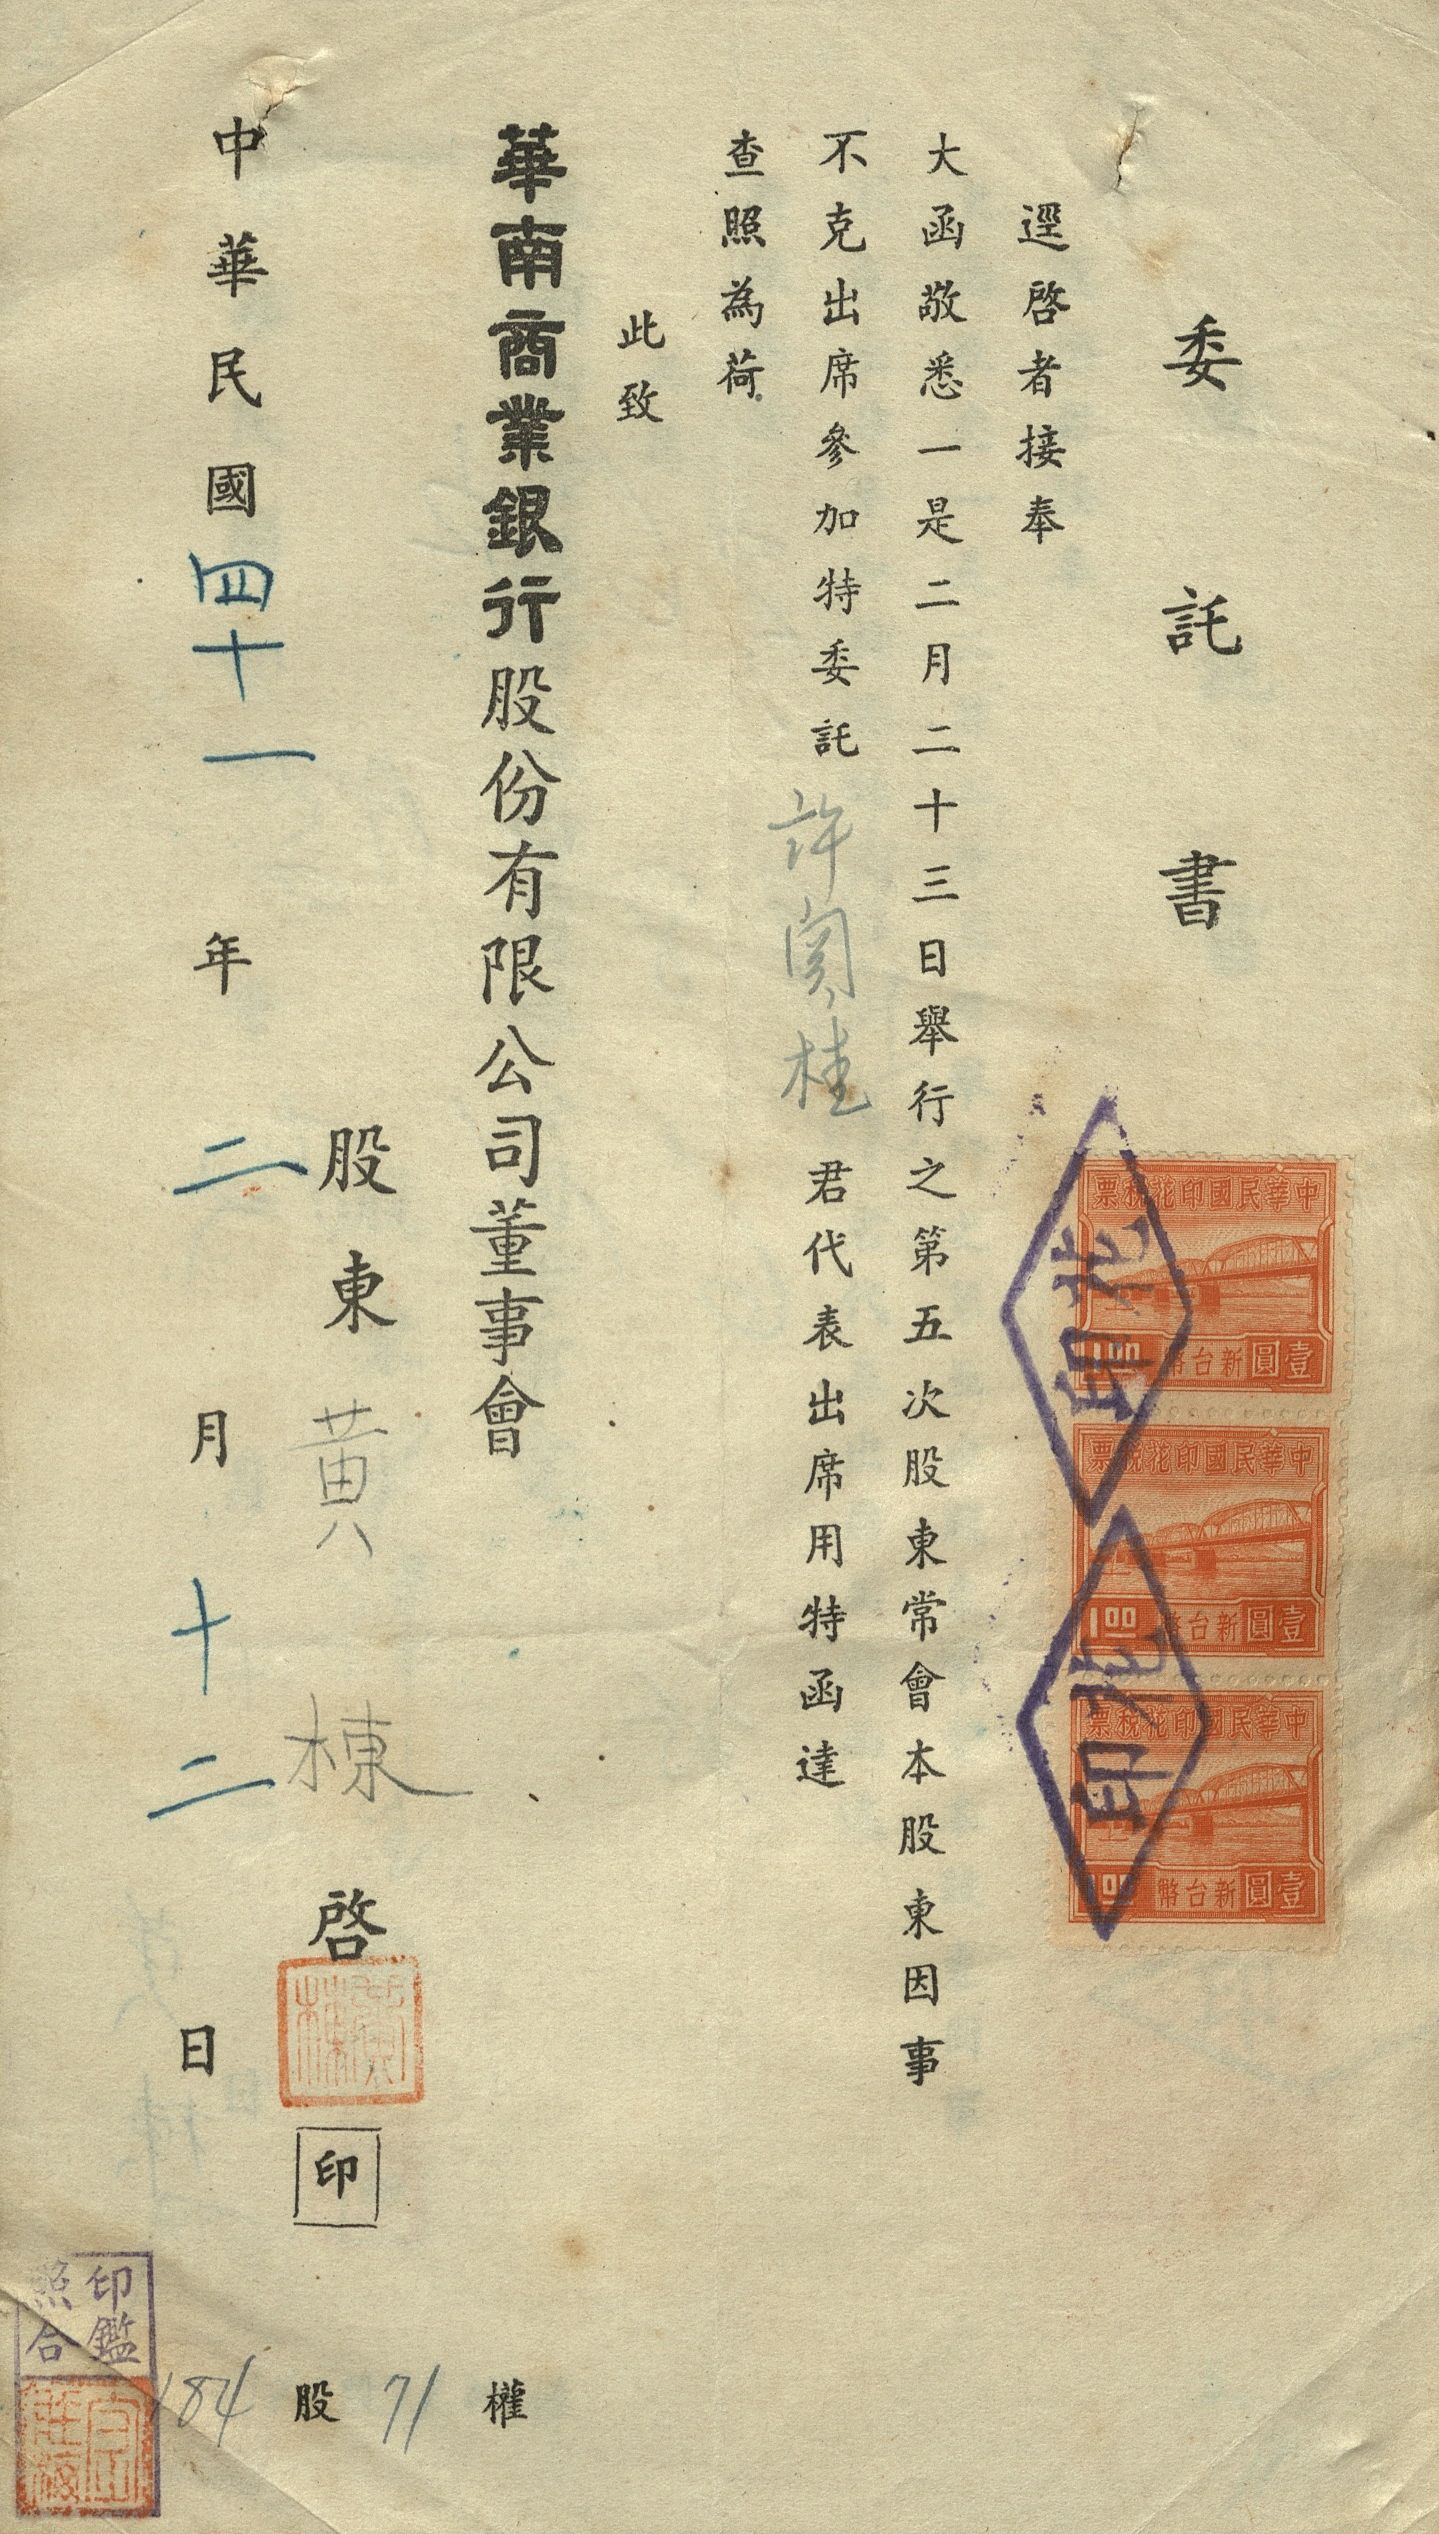 委託書
逕啓者接奉
大函敬悉一是二月二十三日舉行之第五次股東常會本股東因事
不克出席參加特委託 許 桂 君代表出席用特函達
查照為荷
此致
華南商業銀行股份有限公司董事會
股東 黃棟 啓
黃棟
印
中華民國四十一年二月十二日
184股71權
印鑑
照合
票稅花印國民華中
1.00 幣台新 圓壹
票稅花印國民華中
1.00 幣台新 圓壹
票稅花印國民華中
1.00 幣台新 圓壹
印花
印花